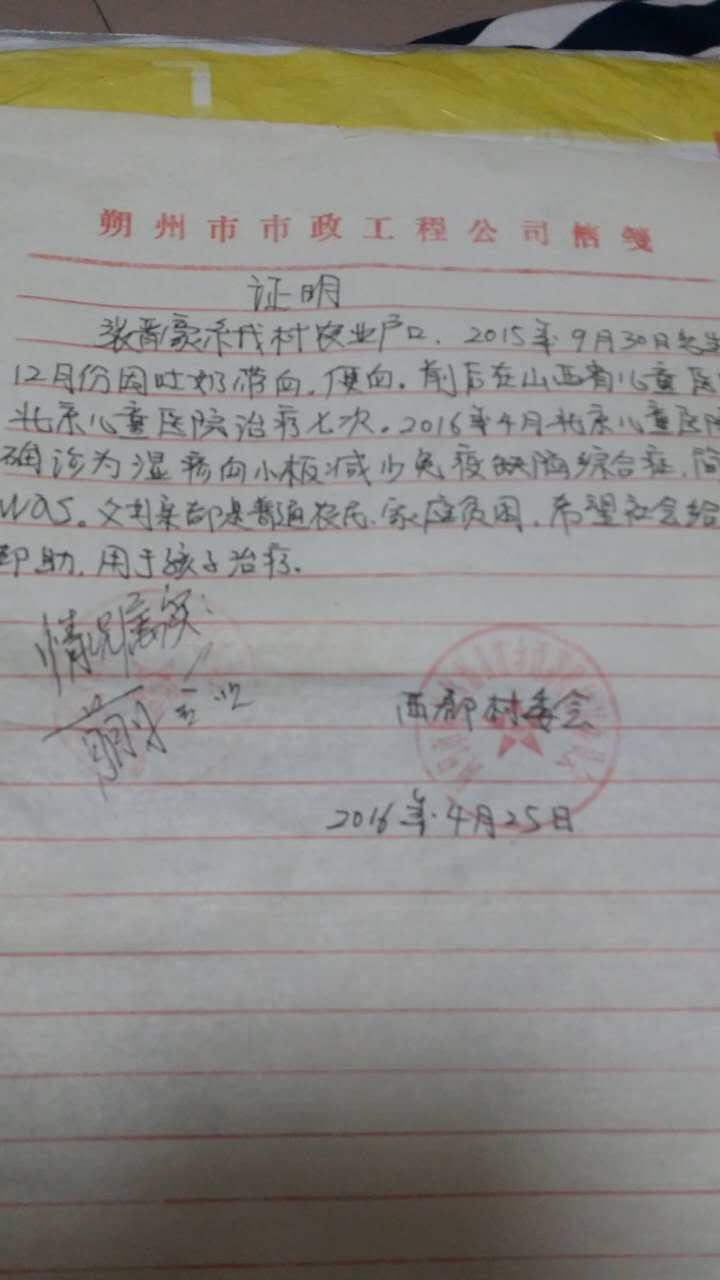 朔州市市政工程公司信笺
证明
张晋豪系我村农业户口、2015年9月30日出生
12月份因吐奶带血、便血,前后在山西省儿童医
北京儿童医院治疗七次。2016年4月北京儿童医院
确诊为湿疹血小板减少免疫缺陷综合症,简
WAS。父母亲都是普通农民、家庭贫困,希望社会给
助,用于孩子治疗。
情况属实:
西都村委会
2016年4月25日